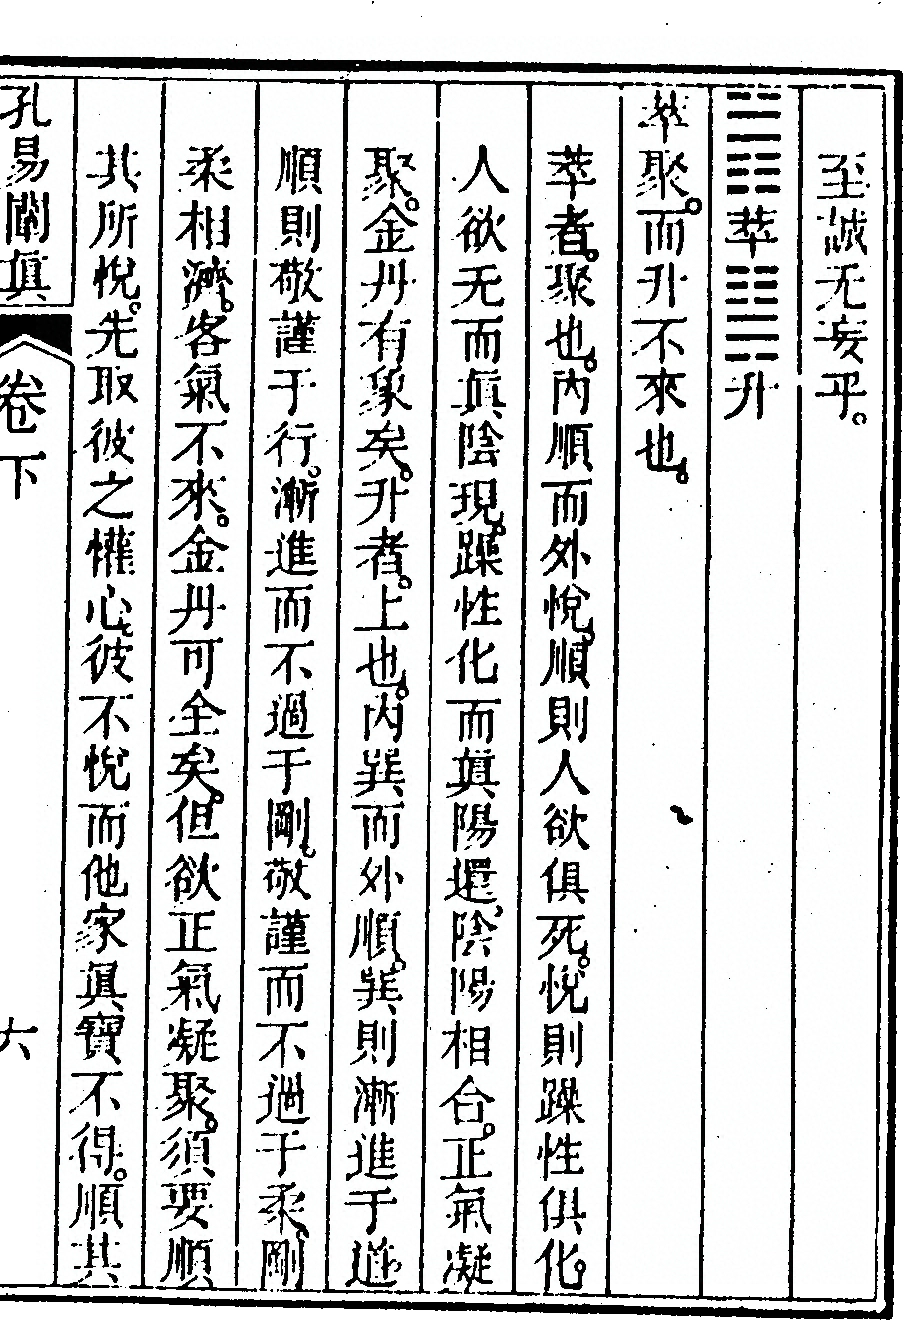 至誠无妄乎。
䷬萃䷭升
萃聚。而升不來也。
萃者。聚也。內順而外悅。順則人欲俱死。悅則躁性俱化。
人欲无而眞陰現。躁性化而眞陽還、陰陽相合。正氣凝
聚。金丹有象矣。升者。上也。內巽而外順。巽則漸進于道
順則敬謹于行。漸進而不過于剛。敬謹而不過于柔。剛
柔相濟。客氣不來。金丹可全矣。但欲正氣凝聚。須要順
其所悅。先取彼之懽心。彼不悅而他家眞寶不得。順其
孔易闡眞
卷下
六